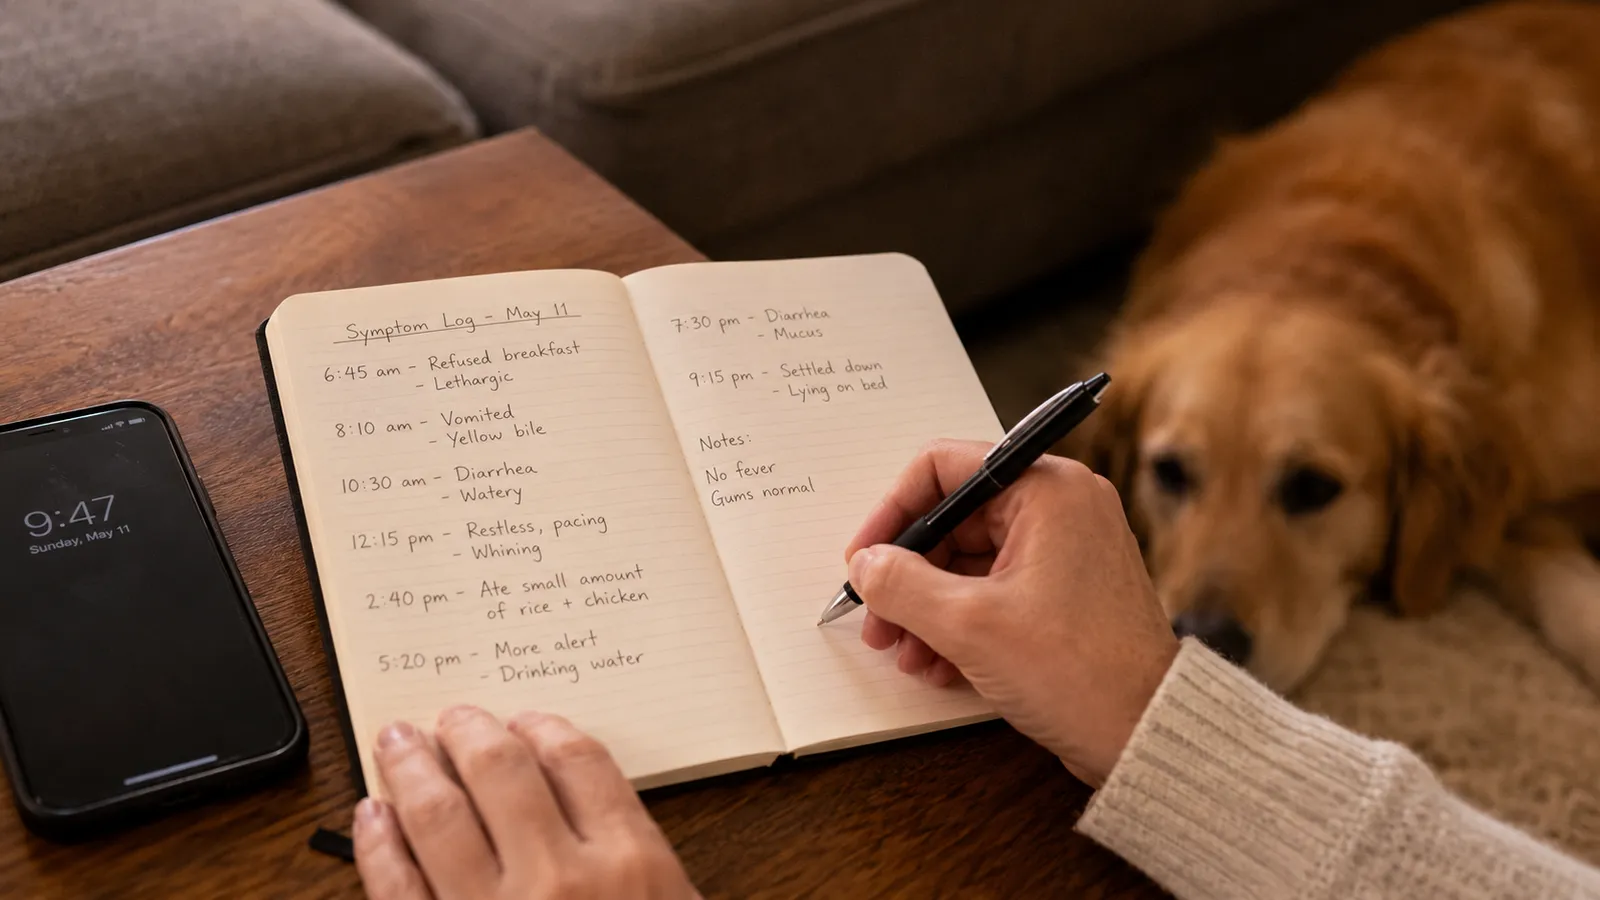 9:47
Sunday, May 11
Symptom Log - May 11
6:45 am - Refused breakfast
- Lethargic
8:10 am - Vomited
- Yellow bile
10:30 am - Diarrhea
- Watery
12:15 pm - Restless, pacing
- Whining
2:40 pm - Ate small amount
of rice + chicken
5:20 pm - More alert
- Drinking water
7:30 pm - Diarrhea
- Mucus
9:15 pm - Settled down
- Lying on bed
Notes:
No fever
Gums normal